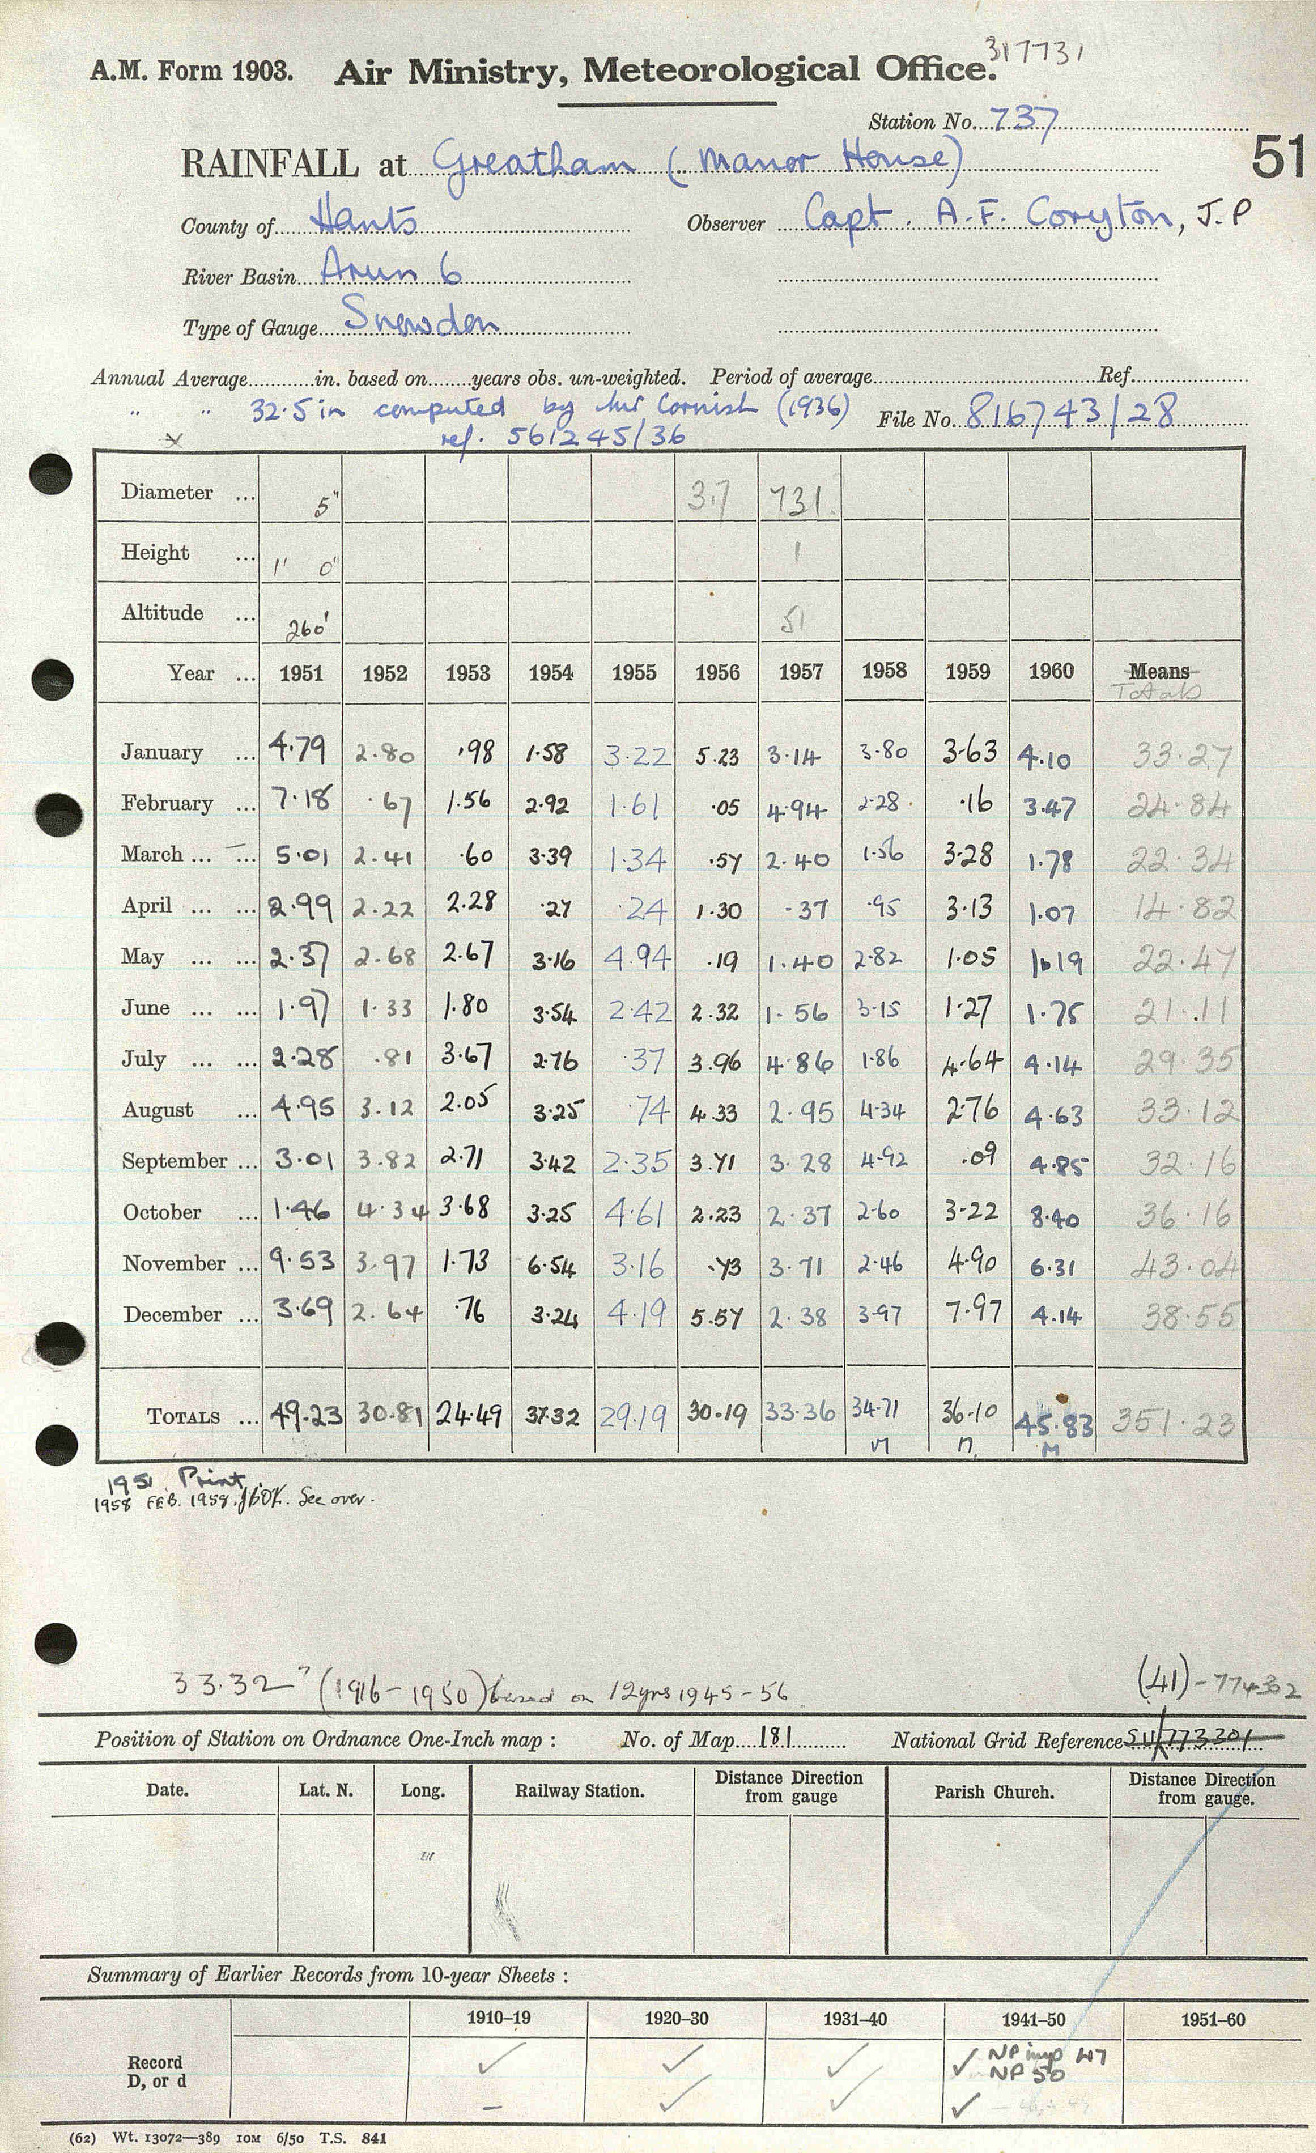 317731
A.M. Form 1903. Air Ministry, Meteorological Office.
Station No. 737
51
RAINFALL at Greatham (Manor House)
County of Hants Observer Capt. A.F. Coryton, J.P
River Basin Arun 6
Type of Gauge Snowdon
Annual Average in. based on years obs. un-weighted. Period of average Ref.
" " 32.5 in computed by Mr Cornish (1936) File No. 816743/28
ref. 561245/36
Diameter ... 5" 317 731
Height ... 1' 0" 1
Altitude ... 260' 51
Year ... 1951 1952 1953 1954 1955 1956 1957 1958 1959 1960 Means
Totals
January ... 4.79 2.80 .98 1.58 3.22 5.23 3.14 3.80 3.63 4.10 33.27
February ... 7.18 .67 1.56 2.92 1.61 .05 4.94 2.28 .16 3.47 24.84
March ... ... 5.01 2.41 .60 3.39 1.34 .57 2.40 1.56 3.28 1.78 22.34
April ... ... 2.99 2.22 2.28 .27 .24 1.30 .37 .95 3.13 1.07 14.82
May ... ... 2.37 2.68 2.67 3.16 4.94 .19 1.40 2.82 1.05 1.19 22.47
June ... ... 1.97 1.33 1.80 3.54 2.42 2.32 1.56 3.15 1.27 1.75 21.11
July ... ... 2.28 .81 3.67 2.76 .37 3.96 4.86 1.86 4.64 4.14 29.35
August ... 4.95 3.12 2.05 3.25 .74 4.33 2.95 4.34 2.76 4.63 33.12
September ... 3.01 3.82 2.71 3.42 2.35 3.71 3.28 4.92 .09 4.85 32.16
October ... 1.46 4.34 3.68 3.25 4.61 2.23 2.37 2.60 3.22 8.40 36.16
November ... 9.53 3.97 1.73 6.54 3.16 .73 3.71 2.46 4.90 6.31 43.04
December ... 3.69 2.64 .76 3.24 4.19 5.57 2.38 3.97 7.97 4.14 38.55
TOTALS ... 49.23 30.81 24.49 37.32 29.19 30.19 33.36 34.71 36.10 45.83 351.23
M M
1951 Print
1958 FEB. 1959. See over.
33.32" (1916-1950) based on 12yrs 1945-56
(41)-774302
Position of Station on Ordnance One-Inch map : No. of Map 181 National Grid Reference SU/773301
Date. Lat. N. Long. Railway Station. Distance Direction from gauge Parish Church. Distance Direction from gauge.
Summary of Earlier Records from 10-year Sheets :
1910-19 1920-30 1931-40 1941-50 1951-60
Record ✓ ✓ ✓ ✓ NP imp 47
NP 50
D, or d – ✓ ✓ ✓
(62) Wt. 13072—389 10M 6/50 T.S. 841